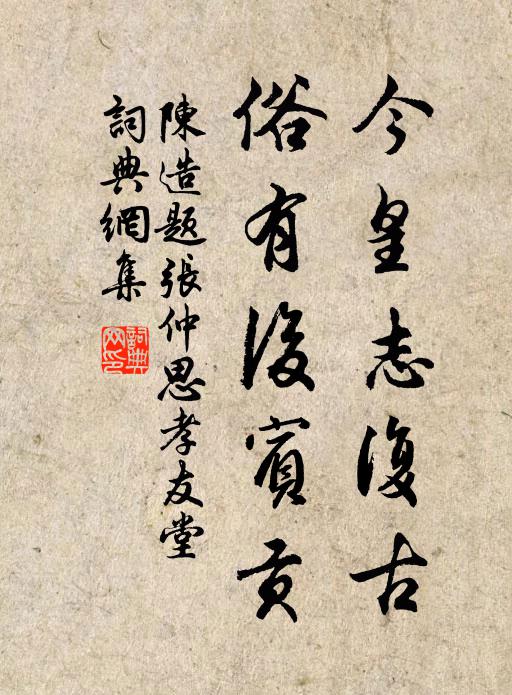 今皇志復古
俗有後賓貢
陳造題張仲思孝友堂
詞典網集
詞典
网印